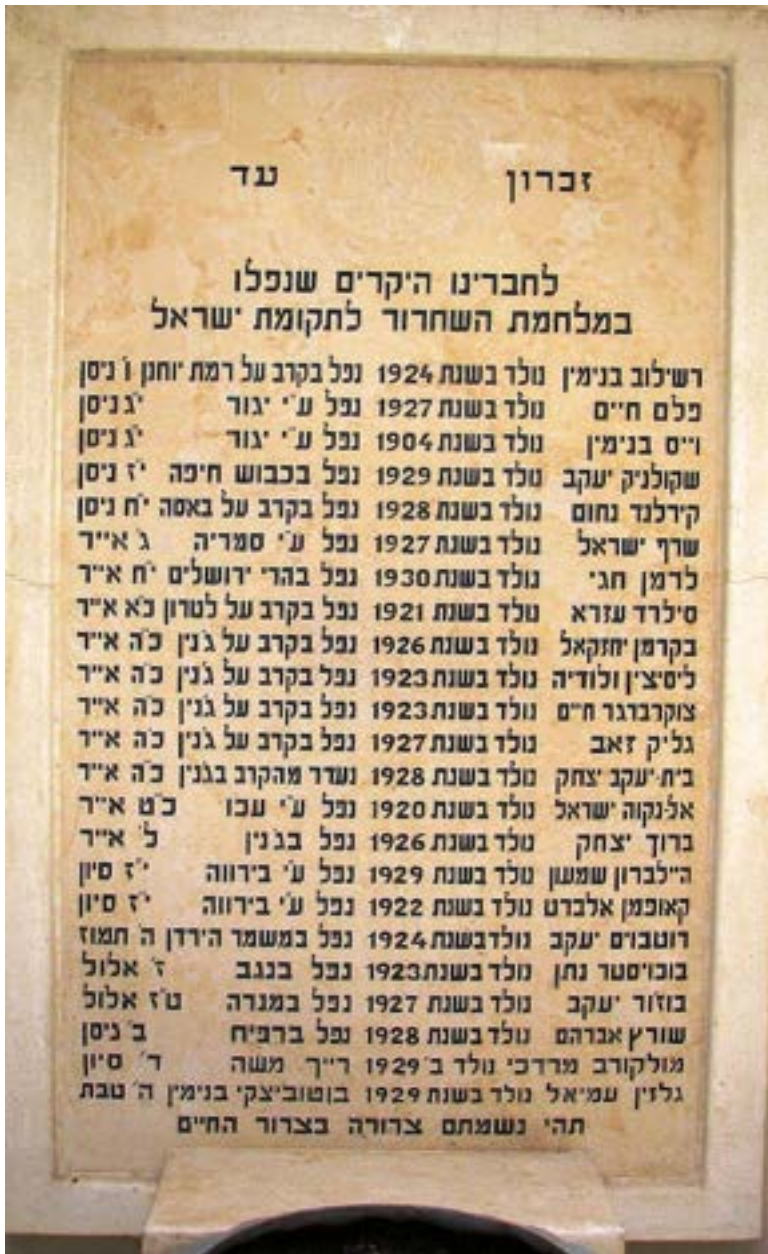 זכרון עד
לחברינו היקרים שנפלו
במלחמת השחרור לתקומת ישראל
רשילוב בנימין נולד בשנת 1924 נפל בקרב על רמת יוחנן ו' ניסן
פלם חיים נולד בשנת 1927 נפל ע"י יגור י"ג ניסן
וייס בנימין נולד בשנת 1904 נפל ע"י יגור י"ג ניסן
שקולניק יעקב נולד בשנת 1929 נפל בכבוש חיפה י"ז ניסן
קירלנד נחום נולד בשנת 1928 נפל בקרב על באסה י"ח ניסן
שרף ישראל נולד בשנת 1927 נפל ע"י סמריה ג' אייר
לרמן חגי נולד בשנת 1930 נפל בהרי ירושלים י"ח אייר
סילרד עזרא נולד בשנת 1921 נפל בקרב על לטרון כ"א אייר
בקרמן יחזקאל נולד בשנת 1926 נפל בקרב על ג'נין כ"ה אייר
ליסיצין ולודיה נולד בשנת 1923 נפל בקרב על ג'נין כ"ה אייר
צוקרברגר חיים נולד בשנת 1923 נפל בקרב על ג'נין כ"ה אייר
גליק זאב נולד בשנת 1927 נפל בקרב על ג'נין כ"ה אייר
בית-יעקב יצחק נולד בשנת 1928 נעדר מהקרב בג'נין כ"ה אייר
אל-נקוה ישראל נולד בשנת 1920 נפל ע"י עכו כ"ט אייר
ברוך יצחק נולד בשנת 1926 נפל בג'נין ל' אייר
היילברון שמשון נולד בשנת 1929 נפל ע"י בירווה י"ז סיון
קאופמן אלברט נולד בשנת 1922 נפל ע"י בירווה י"ז סיון
רוטבוים יעקב נולד בשנת 1924 נפל במשמר הירדן ה' תמוז
בוכויסטר נתן נולד בשנת 1923 נפל בנגב ז' אלול
בוזור יעקב נולד בשנת 1927 נפל במנרה ט"ז אלול
שורץ אברהם נולד בשנת 1928 נפל ברפיח ב' ניסן
מולקורב מרדכי נולד ב' 1929 רייך משה ד' סיון
גלזין עמיאל נולד בשנת 1929 בוטוביצקי בנימין ה' טבת
תהי נשמתם צרורה בצרור החיים